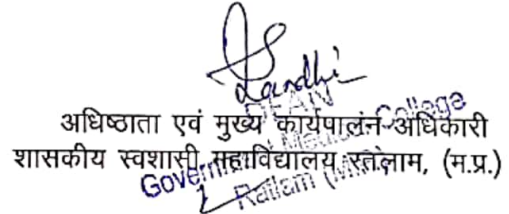 अधिष्ठाता एवं मुख्य कार्यपालन अधिकारी
शासकीय स्वशासी महाविद्यालय रतलाम, (म.प्र.)
DEAN
Government Medical College
Ratlam (M.P.)